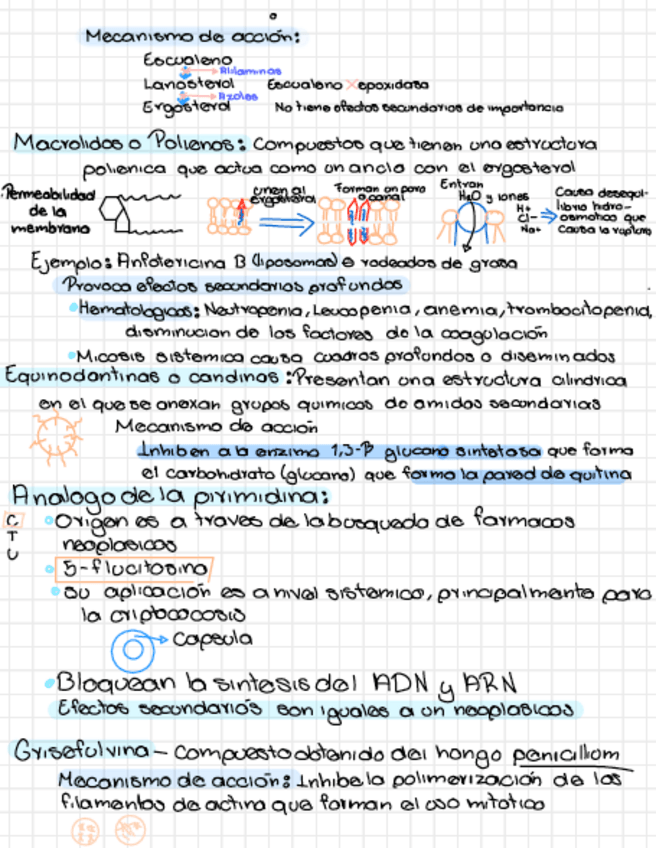 Mecanismo de acción:
Escualeno
Alilaminas
Lanosterol Escualeno epoxidasa
Azoles
Ergosterol No tiene efectos secundarios de importancia
Macrolidos o Polienos: Compuestos que tienen una estructura
polienica que actua como un ancla con el ergosterol
Permeabilidad de la membrana
unen al ergosterol
Forman un poro o canal
Entran H2O y iones
H+
Cl-
Na+
Causa desequilibrio hidro-osmotico que causa la ruptura
Ejemplo: Anfotericina B (liposomas) o rodeados de grasa
Provoca efectos secundarios profundos
Hematologicos: Neutropenia, Leucopenia, anemia, trombocitopenia,
disminucion de los factores de la coagulación
Micosis sistemica causa cuadros profundos o diseminados
Equinodantinas o candinas: Presentan una estructura cilindrica
en el que se anexan grupos quimicos de amidas secundarias
Mecanismo de acción
Inhiben a la enzima 1,3-β glucano sintetasa que forma
el carbohidrato (glucano) que forma la pared de quitina
Analogo de la pirimidina:
C
T
U
Origen es a traves de la busqueda de farmacos
neoplasicos
5-flucitosina
su aplicación es a nivel sistemico, principalmente para
la criptococosis
Capsula
Bloquean la sintesis del ADN y ARN
Efectos secundarios son iguales a un neoplasicos
Grisefulvina - Compuesto obtenido del hongo penicillium
Mecanismo de acción: Inhibe la polimerización de los
filamentos de actina que forman el uso mitotico